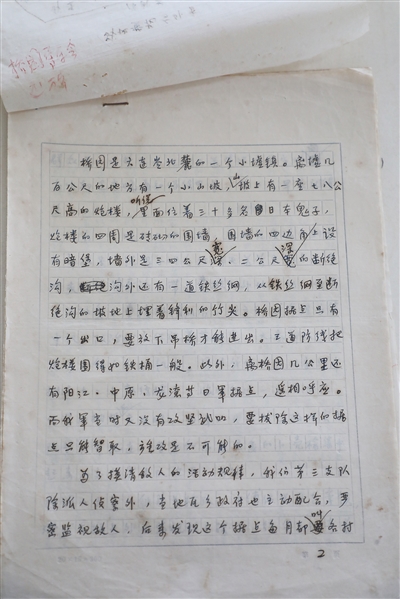 桥园是六连岭北麓的一个小墟镇。离墟几
百公尺的地方有一个小山坡，山坡上有一座七八公
尺高的炮楼，听说里面住着三十多名日本鬼子，
炮楼的四周是砖砌的围墙，围墙的四边角上设
有暗堡，墙外是三四公尺宽、二公尺深的断绝
沟，沟外还有一道铁丝網，从铁丝網至断
绝沟的坡地上埋着锋利的竹尖。桥园据点只有
一个出口，要放下吊桥才能进出。三道防线把
炮楼围得如铁桶一般。此外，离桥园几公里还
有阳江、中原、龙滚等日军据点，遥相呼应。
而我军当时又没有攻坚武器，要拔除这样的据
点只能智取，强攻是不可能的。
为了摸清敌人的活动规律，我们第三支队
除派人侦察外，当地区乡政府也主动配合，严
密监视敌人，后来发现这个据点每月都叫各村
2